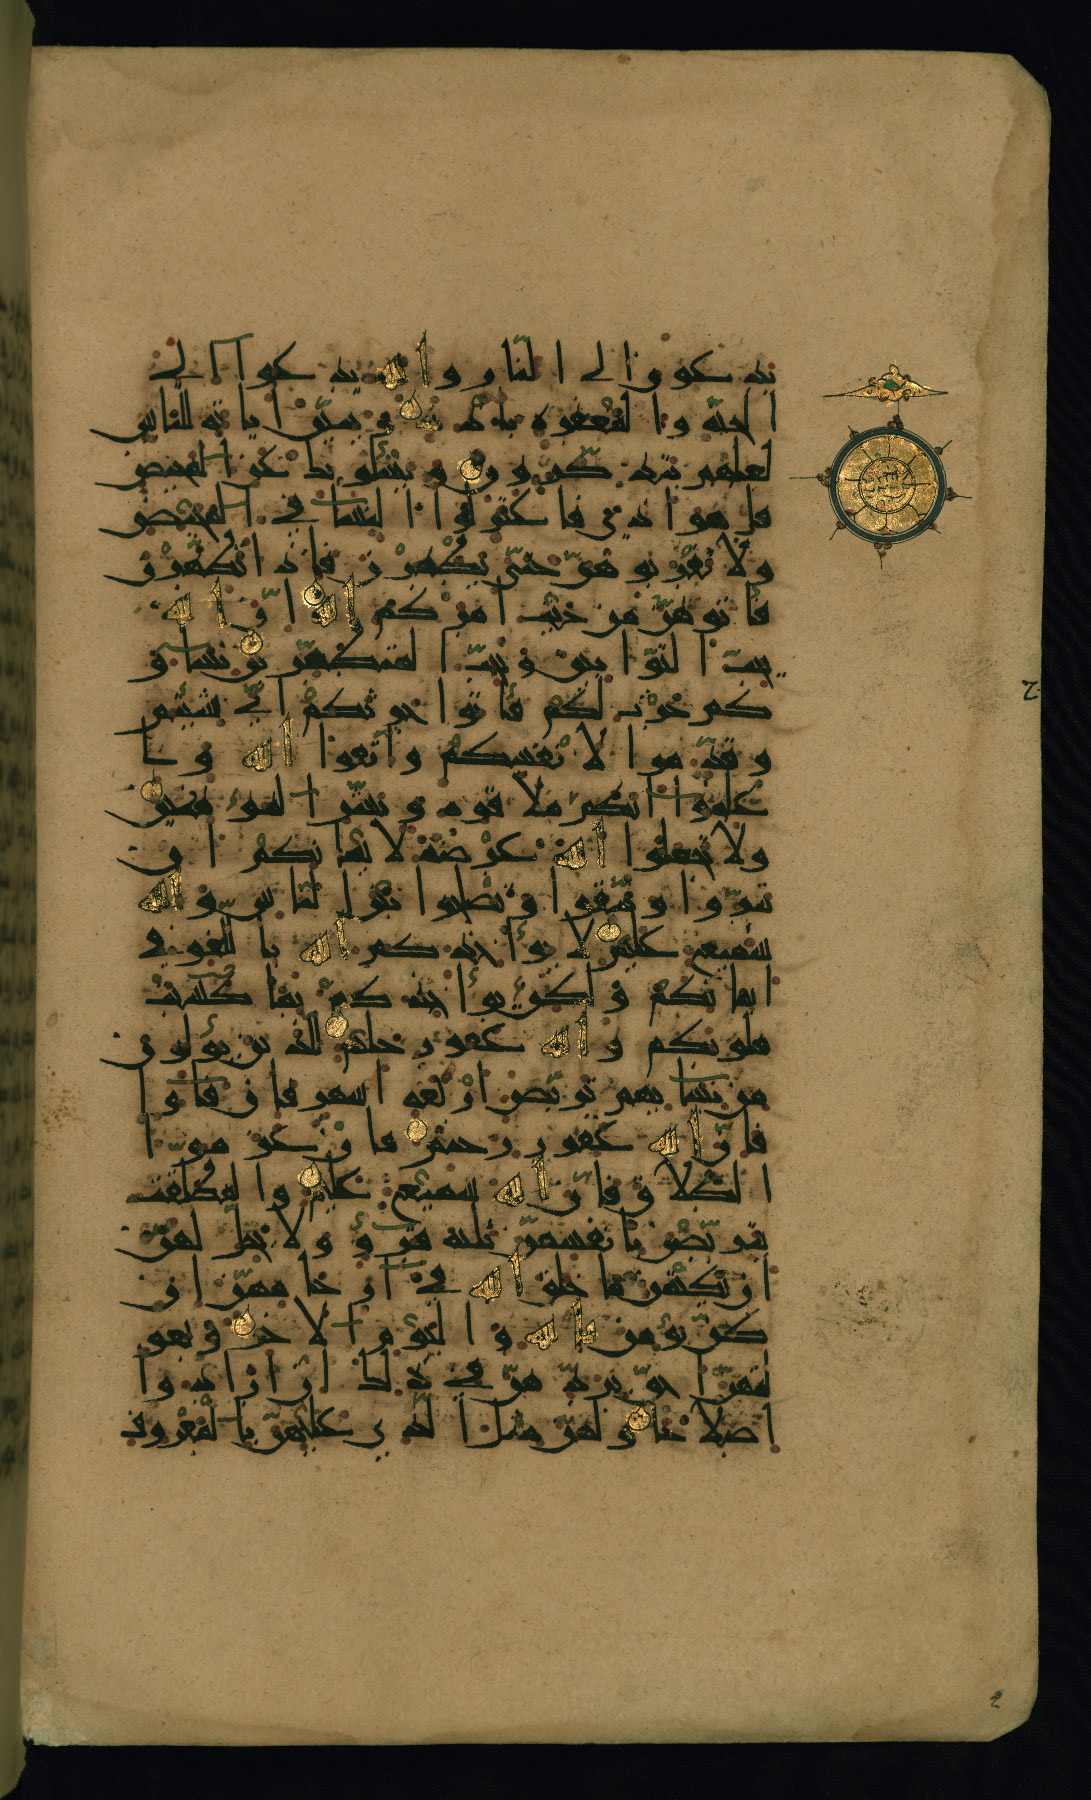 يدعون الى النار والله يدعوا الى
الجنة والمغفرة باذنه و يبين اياته للناس
لعلهم يتذكرون و يسلونك عن المحيض
قل هو اذى فاعتزلوا النسا في المحيض
ولا تقربوهن حتى يطهرن فاذا تطهرن
فاتوهن من حيث امركم الله ان الله
يحب التوابين و يحب المتطهرين نسا و
كم حرث لكم فاتوا حرثكم انى شيتم
و قدموا لا نفسكم واتقوا الله و ا
علموا انكم ملاقوه و بشر المومنين
ولا تجعلوا الله عرضة لا يمانكم ان
تبروا و تتقوا و تصلحوا بين الناس و الله
سميع عليم لا يواخذكم الله باللغو في
ايمانكم و لكن يواخذكم بما كسبت
قلوبكم و الله غفور حليم للذين يولون
من نسايهم تربص اربعة اشهر فان فا وا
فان الله غفور رحيم فان عزموا
الطلاق فان الله سميع عليم والمطلقت
يتربصن بانفسهن ثلثة قرو ولا يحل لهن
ان يكتمن ما خلق الله في ارحامهن ان
كن يومن بالله و اليوم الاخر و بعو
لتهن احق بردهن في ذلك ان ارادوا
اصلاحا و لهن مثل الذي عليهن بالمعروف